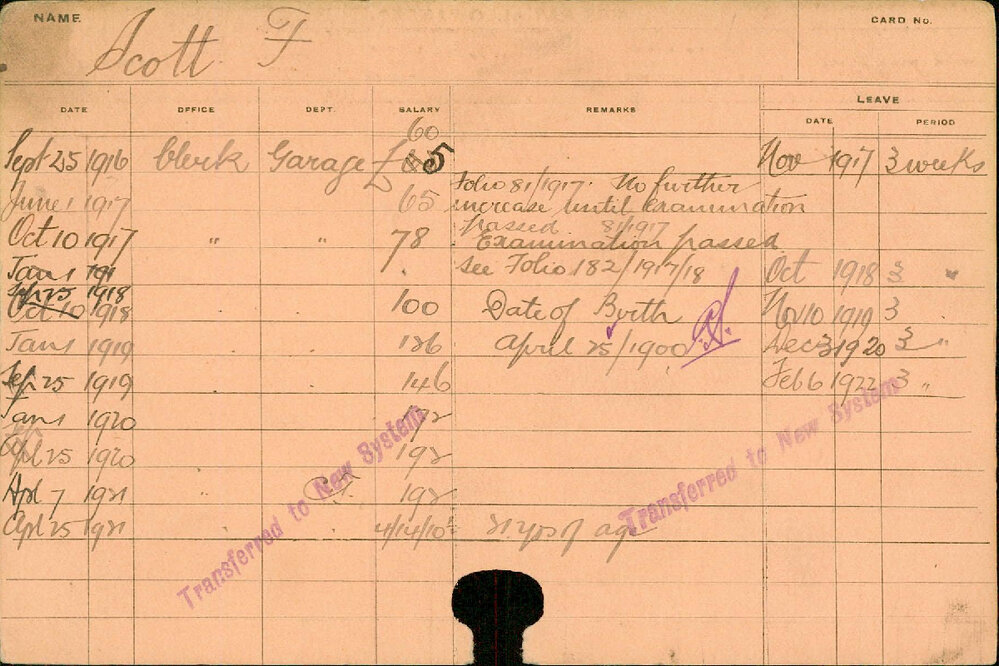 NAME. CARD No.
Scott F
DATE OFFICE DEPT. SALARY REMARKS LEAVE
DATE PERIOD
60
Sept 25 1916 Clerk Garage £ 5 Nov 1917 3 weeks
Folio 81/1917. No further
June 1 1917 65 increase until examination
passed 81/1917
Oct 10 1917 " " 78 Examination passed
Jan 1 See Folio 182/1917/18 Oct 1918 3 "
Sep 25 1918
Oct 10 1918 100 Date of Birth Nov 10 1919 3
Jan 1 1919 126 April 25/1900 Dec 3 1920 3 "
Sep 25 1919 146 Feb 6 1922 3 "
Jan 1 1920 192
Apl 25 1920 192
Apl 7 1921 192
Apl 25 1921 4/14/10 21 yrs of age
Transferred to New System
Transferred to New System